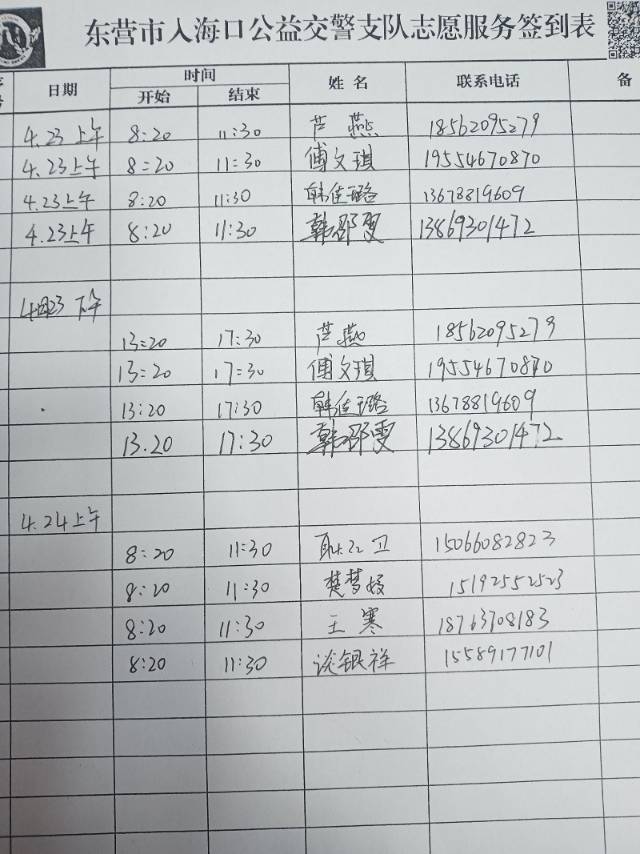 东营市入海口公益交警支队志愿服务签到表
日期 时间 姓名 联系电话 备
开始 结束
4.23上午 8:20 11:30 芦燕 18562095279
4.23上午 8:20 11:30 傅文琪 19554670870
4.23上午 8:20 11:30 韩佳璐 13678819609
4.23上午 8:20 11:30 韩邵雯 13869301472
4月23 下午
13:20 17:30 芦燕 18562095279
13:20 17:30 傅文琪 19554670870
13:20 17:30 韩佳璐 13678819609
13.20 17:30 韩邵雯 13869301472
4.24上午
8:20 11:30 耿红卫 15066082823
8:20 11:30 楚梦 15192552523
8:20 11:30 王寒 18763708183
8:20 11:30 谈银祥 15589177101